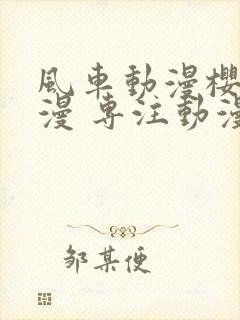 風車動漫櫻
漫 專注動漫
鄒某便